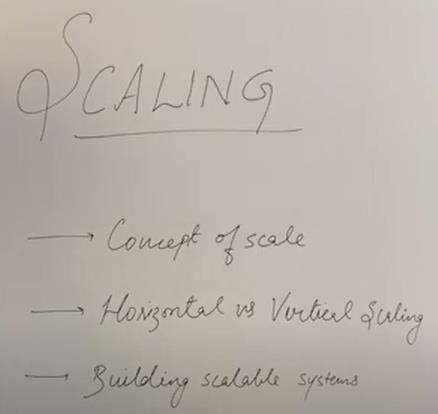 SCALING
→ Concept of scale
→ Horizontal vs Vertical Scaling
→ Building scalable systems